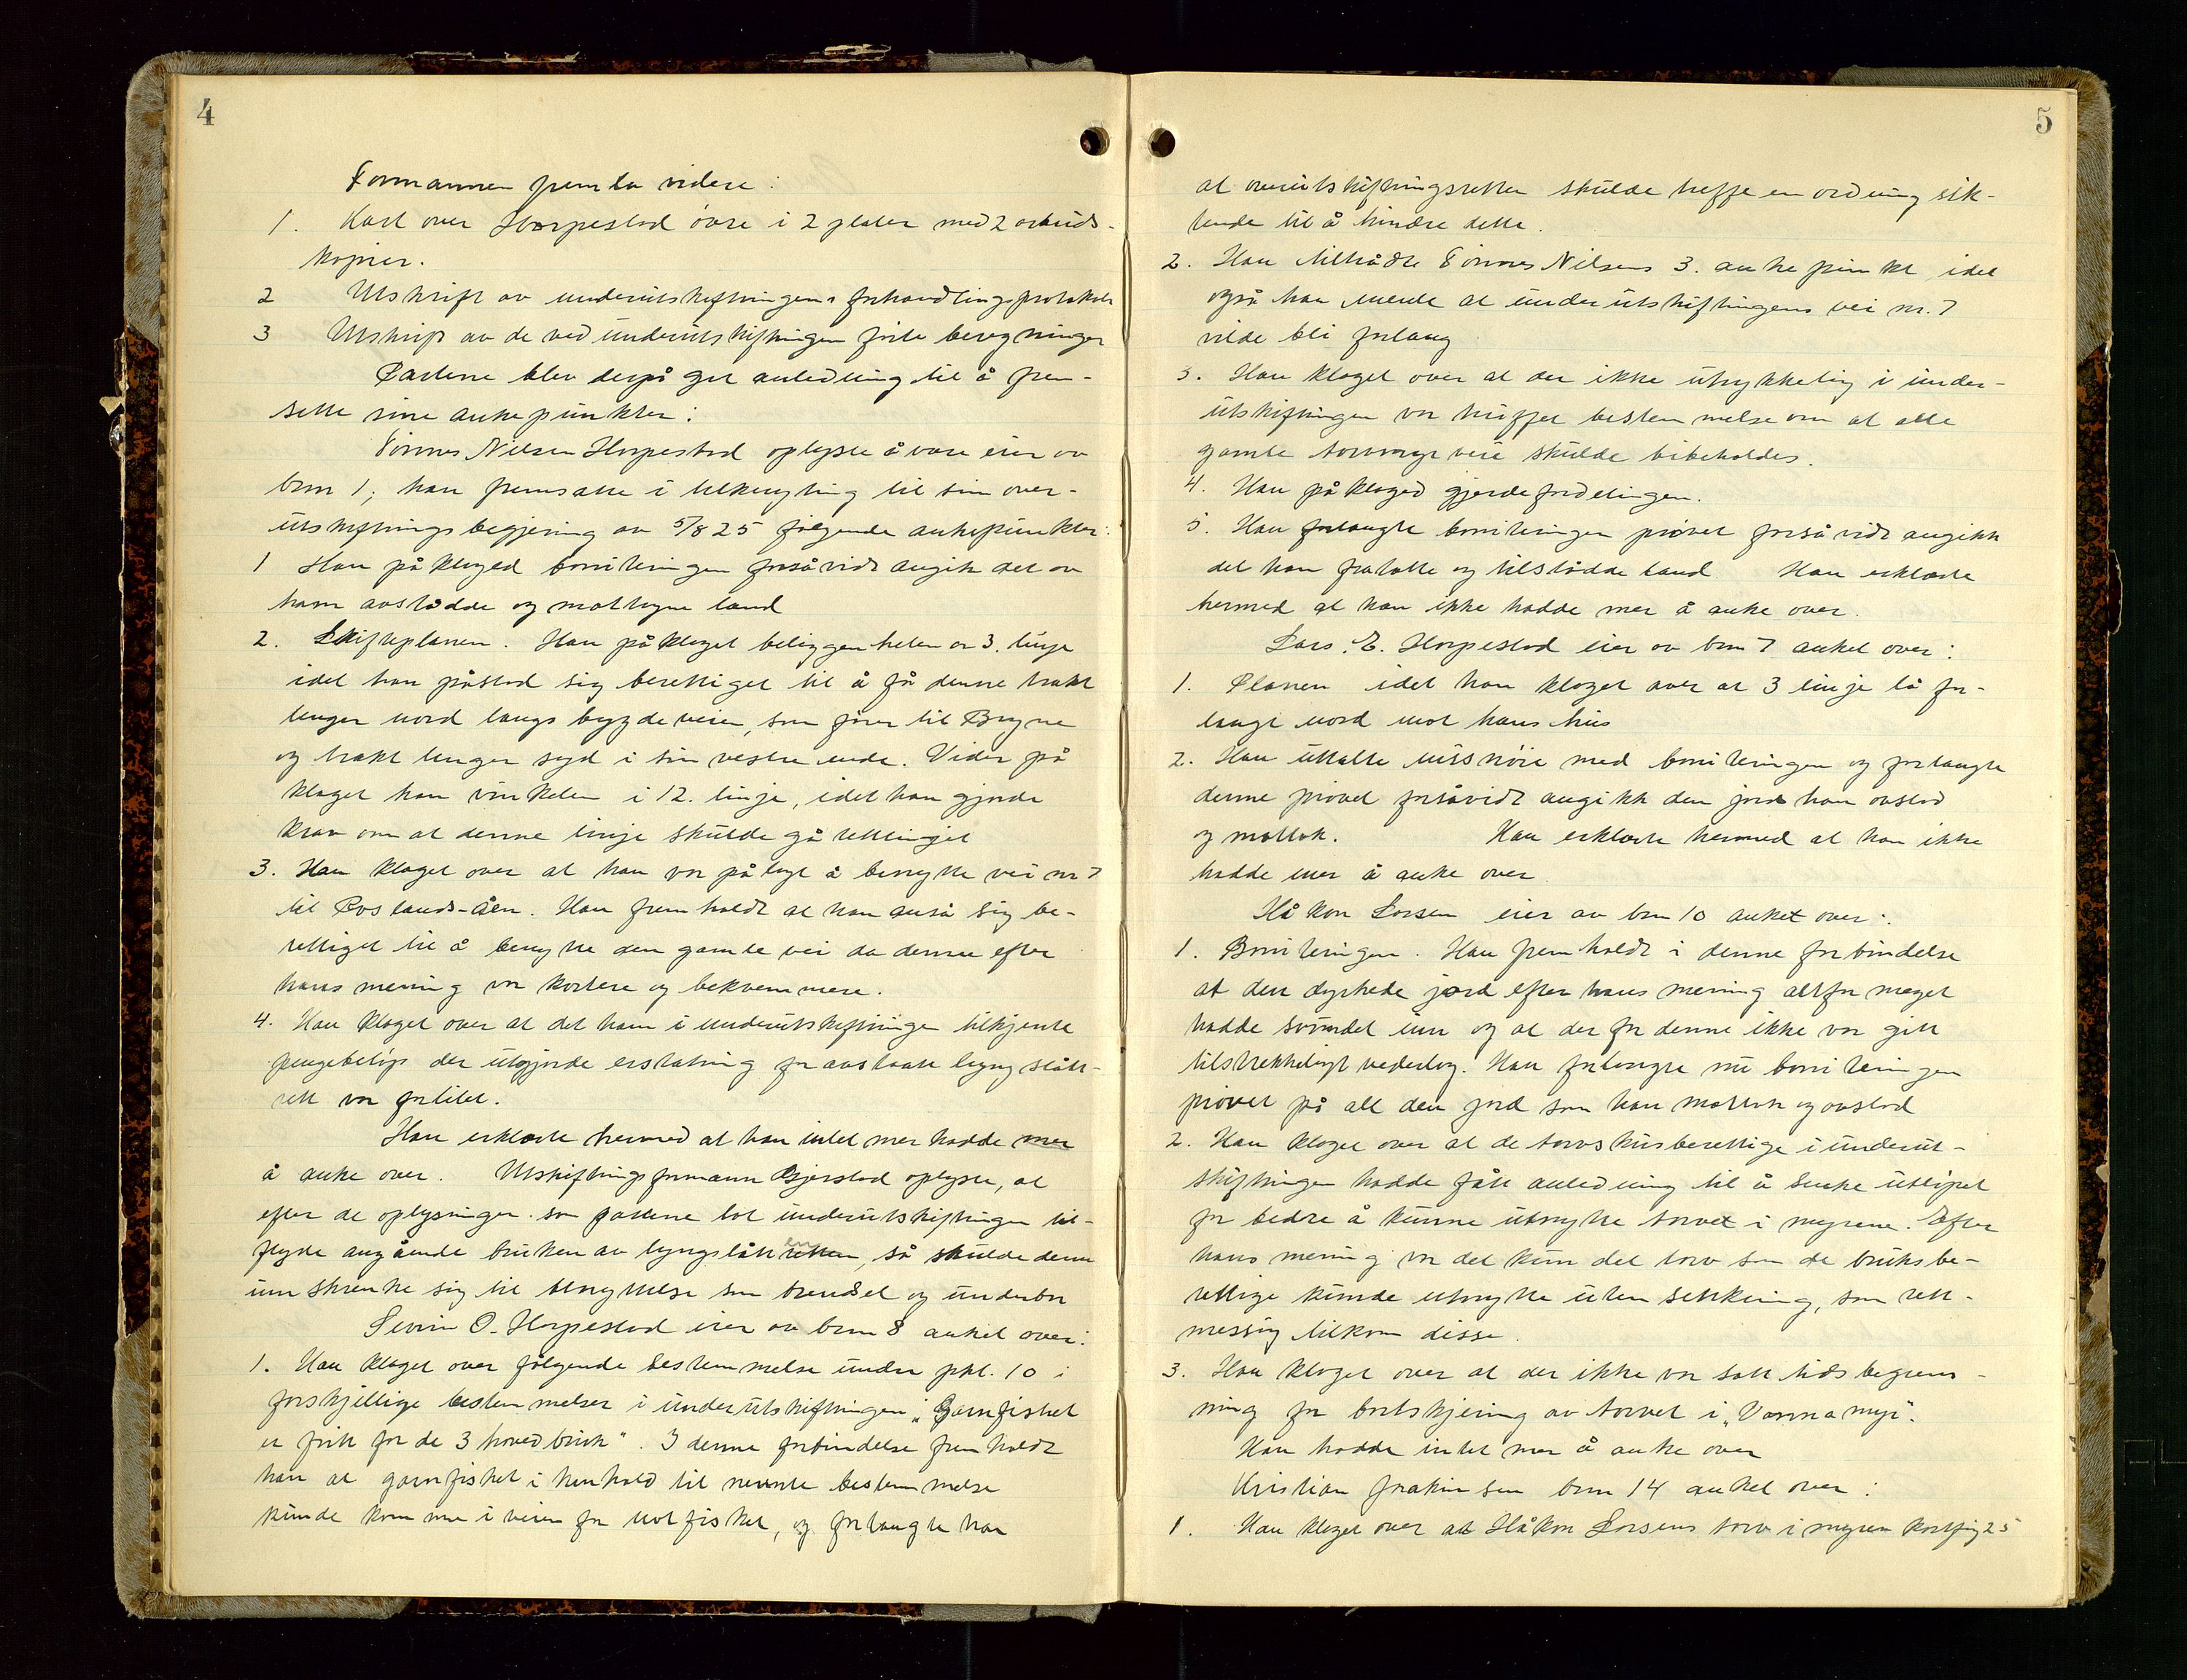 4
Formannen fremla videre:
1. Kart over Horpestad øvre i 2 plater med 2 arbeids-
kopier.
2 Utskrift av underutskiftningens forhandlingsprotokoll
3 Utskrift av de ved underutskiftningen førte beregninger
Partene blev derpå git anledning til å frem-
sette sine ankepunkter:
Tønnes Nilsen Horpestad oplyste å være eier av
brn 1; han fremsatte i tilknytning til sin over-
utskiftningsbegjering av 5/8 25 følgende ankepunkter:
1 Han påklaged boniteringen forsåvidt angik det av
ham avstådde og mottagne land
2. Skifteplanen. Han påklaget beliggenheten av 3. linje
idet han påstod sig berettiget til å få denne trakt
lenger nord langs bygdeveien, som fører til Bryne
og trakt lenger syd i sin vestre ende. Vider på
klaget han vinkelen i 12. linje, idet han gjorde
krav om at denne linje skulde gå rettlinjet
3. Han klaget over at han var pålagt å benytte vei nr 7
til Roslands-åen. Han fremholdt at han anså sig be-
rettiget til å benytte den gamle vei da denne efter
hans mening var kortere og bekvemmere.
4. Han klaget over at det ham i underutskiftningen tilkjente
pengebeløp der utgjorde erstatning for avstaatt lyngslått-
rett var forlitet.
Han erklærte hermed at han intet mer hadde mer
å anke over. Utskiftningsformann Bjerstad oplyste, at
efter de oplysninger som partene lot underutskiftningen til-
flyde angående bruken av lyngslåttretten, så skulde denne
innskrenke sig til benyttelse som brensel og underbr
Sevrin O. Horpestad eier av brn 8 anket over:
1. Han klaget over følgende bestemmelse under pkt. 10 i
forskjellige bestemmelser i underutskiftningen „Garnfisket
er fritt for de 3 hovedbruk". I denne forbindelse fremholdt
han at garnfisket i henhold til nevnte bestemmelse
kunde komme i veien for notfisket, og forlangte han
5
at overutskiftningsretten skulde treffe en ordning sik-
tende til å hindre dette.
2. Han tiltrådte Tønnes Nilsens 3. ankepunkt idet
også han mente at underutskiftningens vei nr. 7
vilde bli forlang
3. Han klaget over at der ikke utrykkelig i under-
utskiftningen var truffet bestemmelse om at alle
gamle torvmyrveie skulde bibeholdes.
4. Han påklaged gjerdefordelingen.
5. Han forlangte boniteringen prøvet forså vidt angikk
det ham fratatte og tilstådde land Han erklærte
hermed at han ikke hadde mer å anke over.
Lars. E. Horpestad eier av brn 7 anket over:
1. Planen idet han klaget over at 3 linje lå for-
langt nord mot hans hus
2. Han uttalte missnøie med boniteringen og forlangte
denne prøvet forsåvidt angikk den jord han avstod
og mottok. Han erklærte hermed at han ikke
hadde mer å anke over.
Håkon Larsen eier av brn 10 anket over:
1. Boniteringen. Han fremholdt i denne forbindelse
at den dyrkede jord efter hans mening altfor meget
hadde svundet inn og at der for denne ikke var gitt
tilstrekkeligt vederlag. Han forlangte nu boniteringen
prøvet på all den jord som han mottok og avstod
2. Han klaget over at de torvskurberettige i underut-
skiftningen hadde fått anledning til å senke utløpet
for bedre å kunne utnytte torvet i myrene. Efter
hans mening var det kun det torv som de bruksbe-
rettige kunde utnytte uten senkning, som rett-
messig tilkom disse.
3. Han klaget over at der ikke var satt tidsbegrens-
ning for bortskjering av torvet i „Varmamyr".
Han hadde intet mer å anke over
Kristian Joakimsen brn 14 anket over:
1. Han klaget over at Håkon Larsens torv i myren kartfig 25